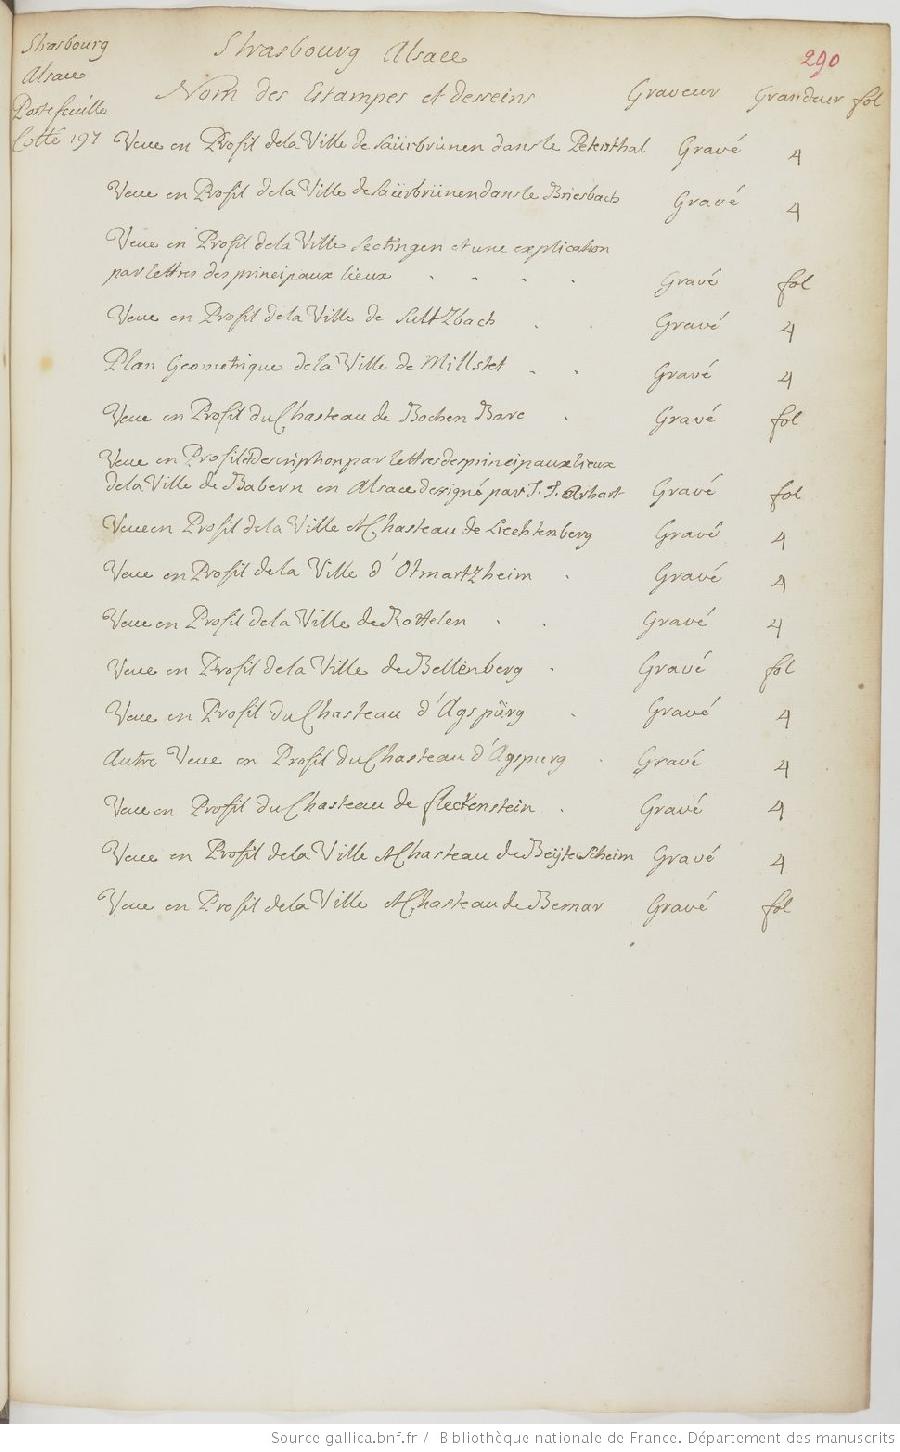 Strasbourg
Alsace
Portefeuille
Cotté 197
Strasbourg Alsace
290
Nom des Estampes et desseins Graveur Grandeur fol
Veue en Profil de la Ville de Saürbrünen dans le Petersthal Gravé 4
Veue en Profil de la Ville de Saürbrünen dans le Briesbach Gravé 4
Veue en Profil de la Ville Sectingen et une explication
par lettres des principaux lieux Gravé fol
Veue en Profil de la Ville de Sultzbach Gravé 4
Plan Geometrique de la Ville de Millstet Gravé 4
Veue en Profil du Chasteau de Bochen Barc Gravé fol
Veue en Profil et description par lettres des principaux lieux
de la Ville de Babern en Alsace designé par J. J. Arhart Gravé fol
Veue en Profil de la Ville et Chasteau de Liechtenberg Gravé 4
Veue en Profil de la Ville d'Otmartzheim Gravé 4
Veue en Profil de la Ville de Rottelen Gravé 4
Veue en Profil de la Ville de Bellenberg Gravé fol
Veue en Profil du Chasteau d'Agspürg Gravé 4
Autre Veue en Profil du Chasteau d'Agspurg Gravé 4
Veue en Profil du Chasteau de fleckenstein Gravé 4
Veue en Profil de la Ville et Chasteau de Beÿtescheim Gravé 4
Veue en Profil de la Ville et Chasteau de Bernar Gravé fol
Source gallica.bnf.fr / Bibliothèque nationale de France. Département des manuscrits